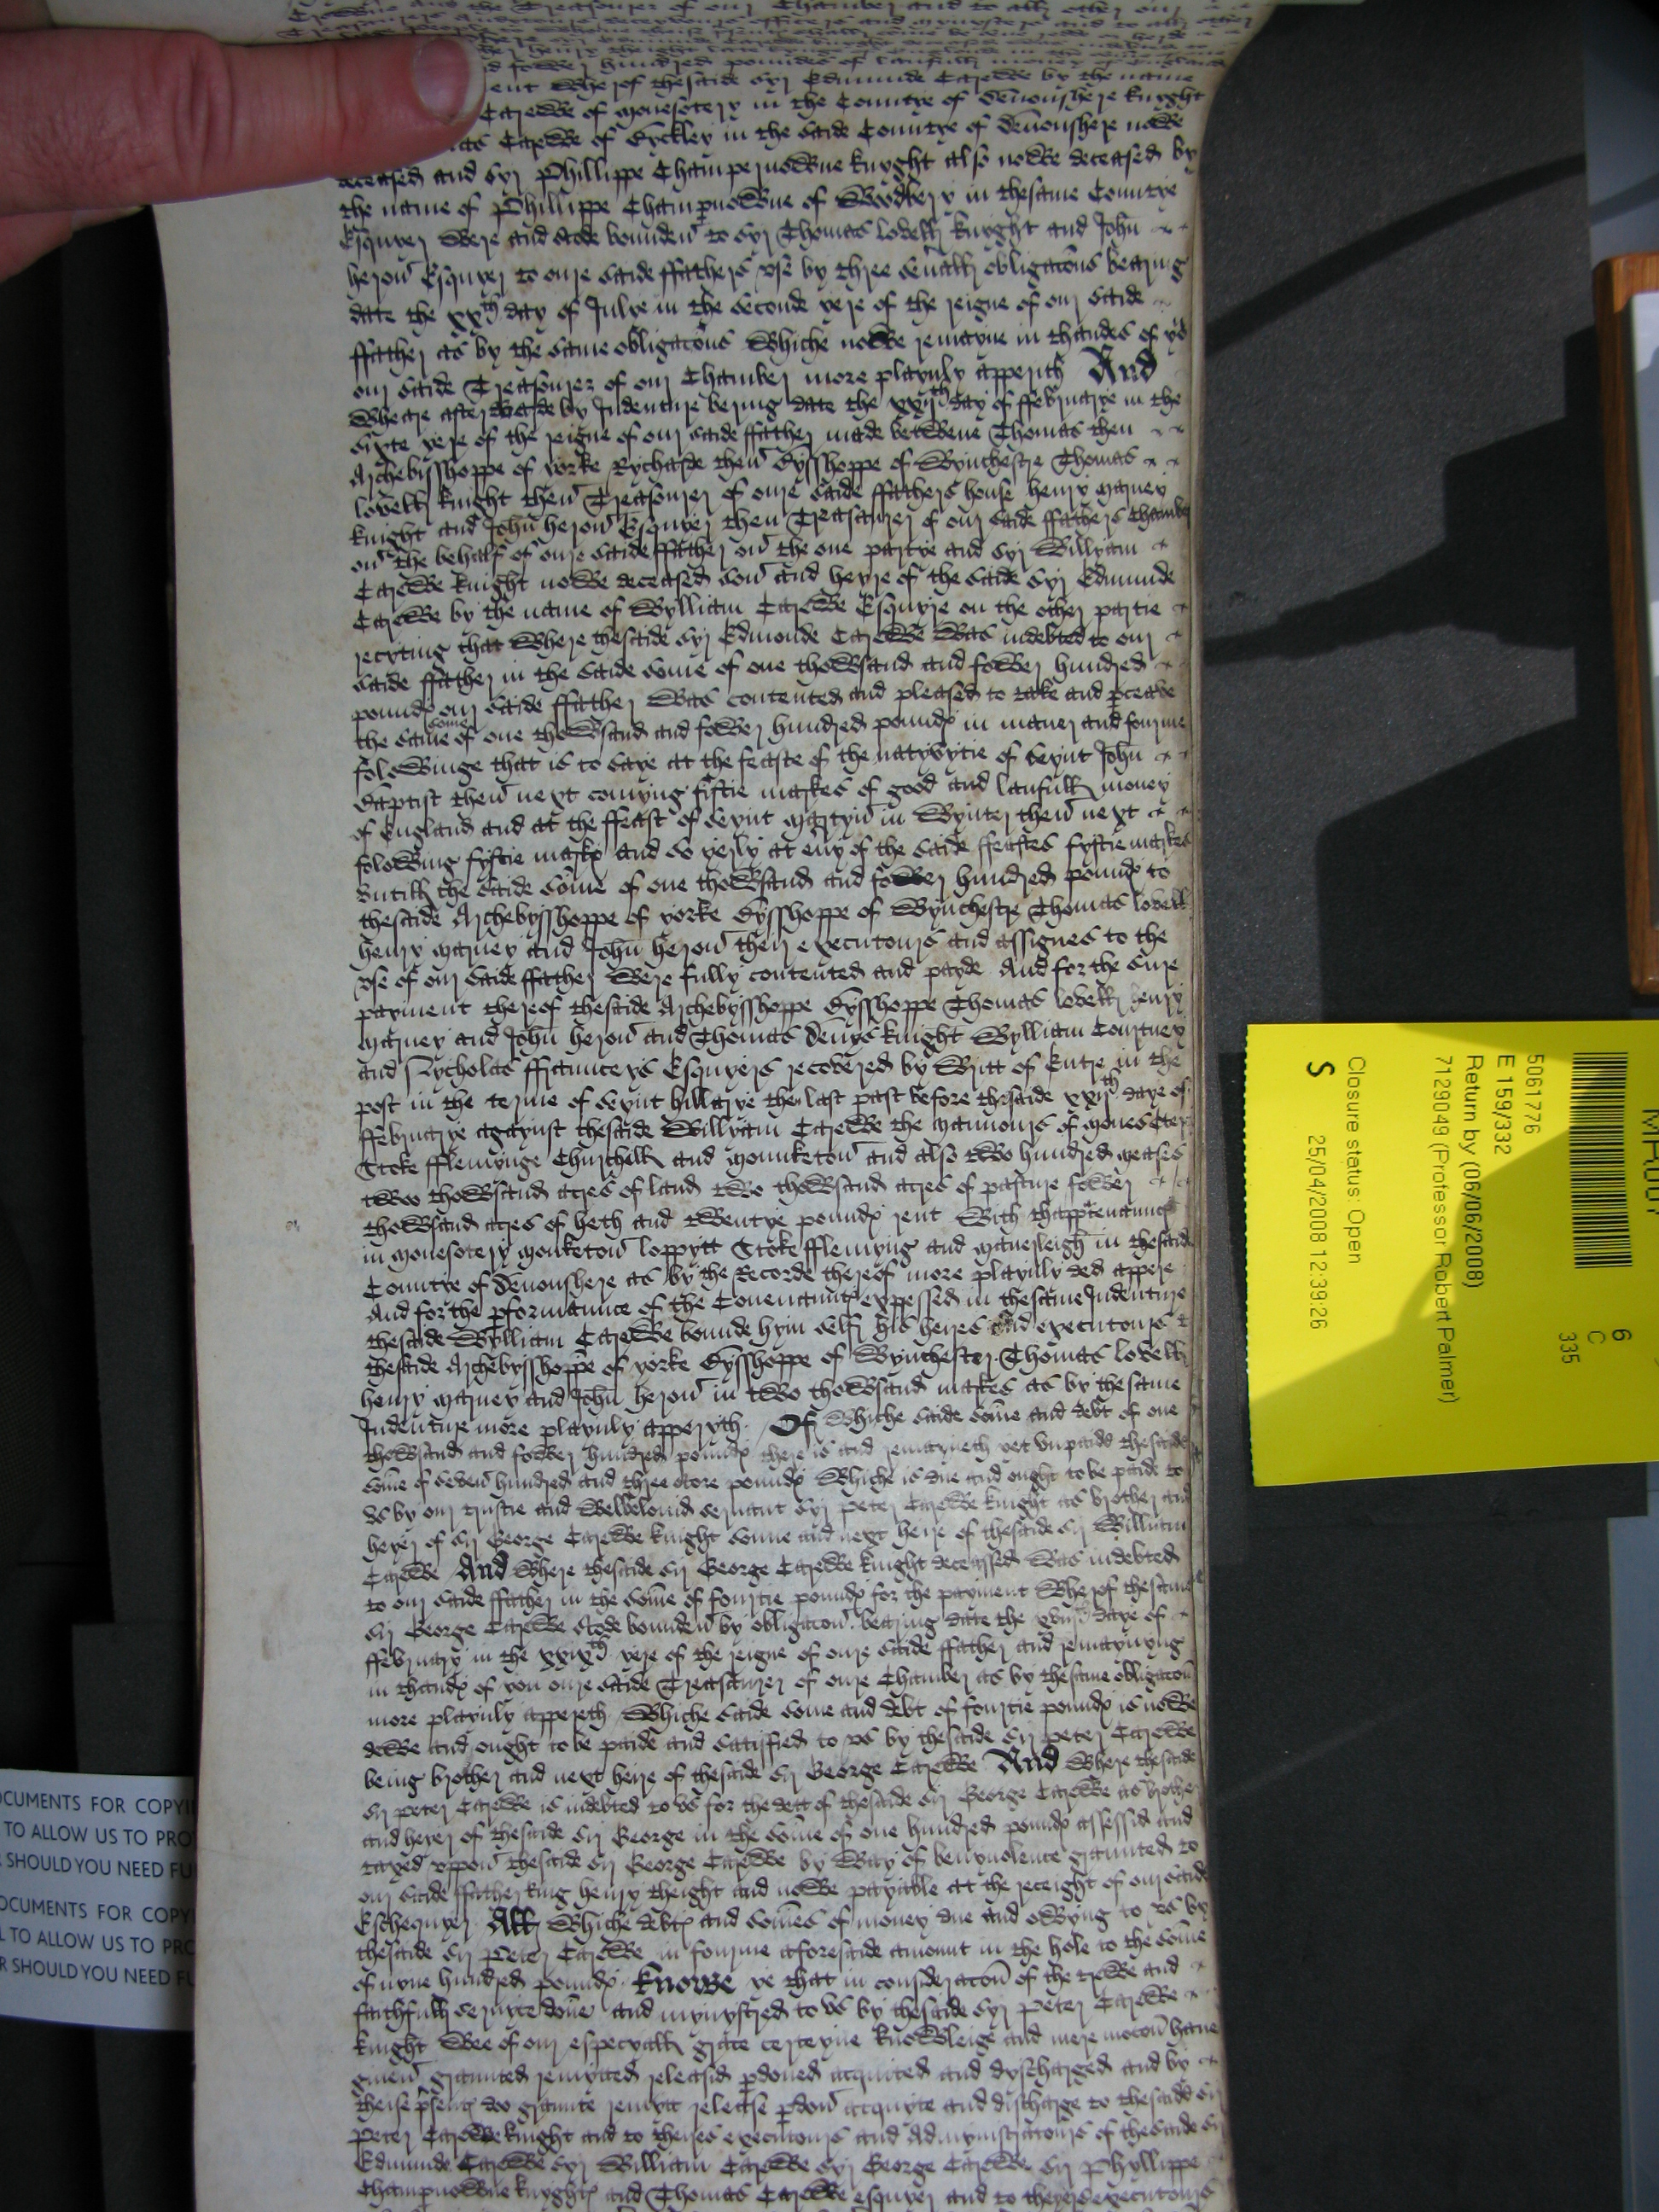 Carewe and the Treasourer of our Chamber and to all other our
and fower hundred poundes of laufull money of England
ent Wherof thesaide Syr Edmunde Carewe by the name
Carewe of Monesotery in the Countye of Devonshere knyght
as Carewe of Byckley in the saide Countye of Devonshere nowe
deceased and Syr Phillippe Champernowne knyght also nowe deceased by
the name of Phillippe Champnowne of Woodbery in thesame Countye
Esquyer Were and stode bounden to Syr Thomas Lovell knyght and John
heron Esquyer to oure saide ffathers use by three sevall obligacons bearing
date the xxth day of Julye in the seconde yere of the reigne of our saide
ffather as by the same obligacons Whiche nowe remayne in thandes of you
our saide Treasourer of our Chamber more playnly apperith And
Wheare afterwarde by Indenture bering date the xxijth day of ffebruarye in the
sixte yere of the reigne of our saide ffather made betwene Thomas then
Archebisshoppe of yorke Rycharde then Bysshoppe of Wynchestre Thomas
lovell knight then Treasourer of oure saide ffathers house henry Marney
knight and John heron Esquyer then Treasaurer of our saide ffathers Chamber
on the behalf of oure saide ffather on the one partye and Syr Willyam
Carewe knight nowe deceased son and heyre of the saide Syr Edmunde
Carewe by the name of Wylliam Carewe Esquyre on the other partie
recyting that Where thesaide Syr Edmonde Carewe Was indebted to our
saide ffather in the saide some of one thowsand and fower hundred
pounds our saide ffather Was contented and pleased to take and pceave
the same some of one thowsand and fower hundred pounds in maner and fourme
folowinge that is to saye at the feaste of the natyvytie of seynt John
Baptist then next comyng fiftie markes of good and laufull money
of England and at the ffeast of Seynt Martyn in Wynter then next
folowing fyftie marks and so yerly at evy of the saide ffeastes fyftie markes
Untill the saide some of one thowsand and fower hundred pounds to
thesaide Archebysshoppe of yorke Bysshoppe of Wynchestre Thomas lovell
henry Marney and John heron their executours and assignes to the
use of our saide ffather Were fully contented and payde And for the sure
payment therof thesaide Archebysshoppe Bysshoppe Thomas lovell henry
Marney and John heron and Thomas Denys knight Wylliam Courtney
and Nycholas ffraunceys Esquyers recovered by Writt of Entre in the
post in the terme of Seynt hillarye then last past before thesaide xxijth daye of
ffebruarye agaynst thesaide Willyam Carewe the Mannours of Monesotery
Stoke fflemynge Churchell and Mounketon and also two hundred Meases
twoo thowsand acres of land two thowsand acres of pasture fower
thowsand acres of heth and twentye pounds rent With thapptenaunces
in Monesotery Monketon loppytt Stoke fflemyng and Manerleigh in thesaide
Countye of Devonshere as by the Recorde therof more playnly ded appere
And for the pformaunce of the Covenaunts expessed in thesame Indenture
thesaide Wylliam Carewe bounde hym self his heires and executours to
thesaide Archebysshoppe of yorke Bysshoppe of Wynchester Thomas lovell
henry Marney and John heron in two thowsand markes as by thesame
Indenture more playnly apperyth Of Whiche saide some and debt of one
thowsand and fower hundred pounds there is and remayneth yet unpaidd thesaide
some of seven hundred and three score pounds Whiche is due and ought to be paide to
us by our trustie and Welbelovid servaunt Syr Peter Carewe knight as brother and
heyer of Sir George Carewe knight sonne and next heire of thesaide Sir Willyam
Carewe And Where thesaide Sir George Carewe knight deceassed Was indebted
to our saide ffather in the some of fourtie pounds for the payment Wherof thesame
Sir George Carewe stode bounden by obligacon bearing date the daye of
ffebruary in the xxixth yere of the reigne of oure saide ffather and remaynyng
in thands of you oure saide Treasaurer of oure Chamber as by thesame obligacon
more playnly appereth Whiche saide some and debt of fourtie pounds is nowe
dewe and ought to be paide and satisfied to us by thesaide Sir Peter Carewe
being brother and next heire of thesaide Sir George Carewe And Where thesaide
Sir Peter Carewe is indebted to us for the dett of thesaide Sir George Carewe as brother
and heyer of thesaide Sir George in the some of one hundred pounds assessid and
taxed uppon thesaide Sir George Carewe by Way of benyvolence graunted to
our saide ffather king henry theight and nowe payable at the receight of our saide
Eschequyer All Whiche debts and somes of money due and owyng to us by
thesaide Sir Peter Carewe in fourme aforesaide amount in the hole to the some
of nyne hundred pounds Knowe ye that in consideracon of the trewe and
faithfull servyce done and mynystred to us by thesaide Syr Peter Carewe
knight Wee of our especyall grace certeyne knowleige and mere mocon have
given graunted remytted releasid pdoned acquited and dyscharged and by
theise psents doo graunte remytt release pdon acquyte and discharge to thesaide Sir
Peter Carewe knight and to theires executours and Admynistratours of thesaide Sir
Edmunde Carewe Syr William Carewe Syr George Carewe Sir Phyllippe
Champnowne knyghts and Thomas Carewe esquyer and to theyres executours
5061776
E 159/332
Return by (06/06/2008)
7129049 (Professor Robert Palmer)
Closure status: Open
S 25/04/2008 12:39:26
6
C
335
OCUMENTS FOR COPYI
TO ALLOW US TO PRO
SHOULD YOU NEED FU
OCUMENTS FOR COPY
L TO ALLOW US TO PRO
R SHOULD YOU NEED FU